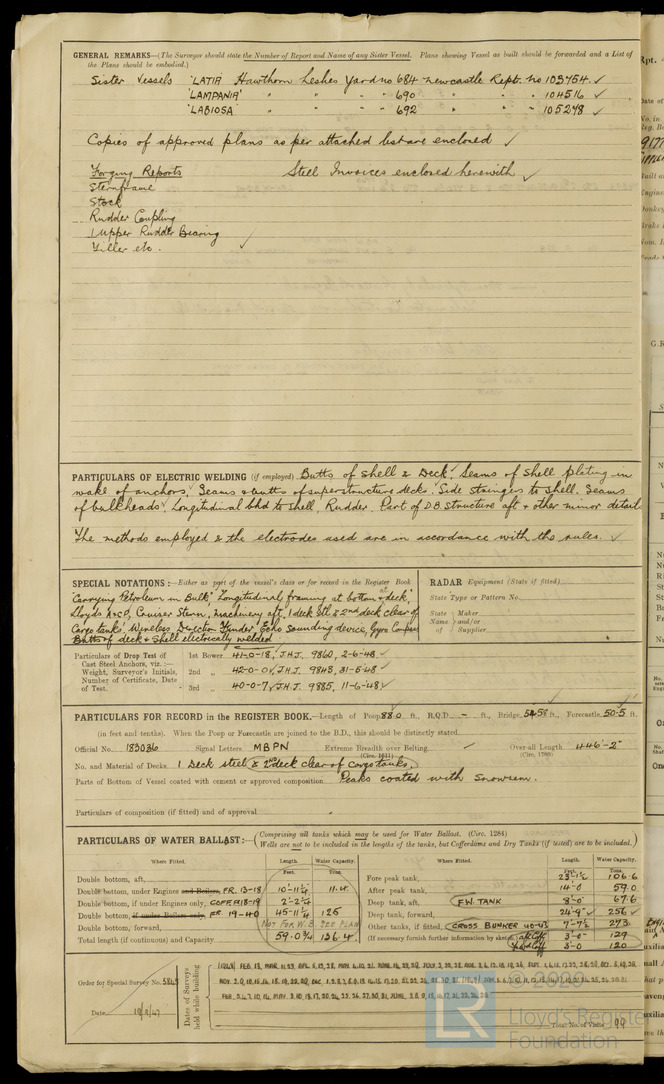 GENERAL REMARKS—(The Surveyor should state the Number of Report and Name of any Sister Vessel. Plans showing Vessel as built should be forwarded and a List of
the Plans should be embodied.)
Sister Vessels 'LATIA Hawthorn Leslies Yard no 684 Newcastle Rept. no 103754 ✓
'LAMPANIA' " " " " 690 " " " 104516 ✓
"LABIOSA" " " " " 692 " " " 105278 ✓
Copies of approved plans as per attached list are enclosed ✓
Forging Reports Steel Invoices enclosed herewith ✓
Sternframe
Stock
Rudder Coupling
1 Upper Rudder Bearing
Tiller etc. ✓
PARTICULARS OF ELECTRIC WELDING (if employed) Butts of Shell & Deck, Seams of Shell plating in
wake of anchors, Seams & butts of superstructure decks. Side stringers to Shell. Seams
of bulkheads, Longitudinal bhd to Shell, Rudder. Part of D.B. Structure aft & other minor detail
The methods employed & the electrodes used are in accordance with the rules. ✓
SPECIAL NOTATIONS:—Either as part of the vessel's class or for record in the Register Book
"Carrying Petroleum in Bulk" Longitudinal framing at bottom & deck,
Lloyds A&CP, Cruiser Stern, Machinery aft, 1 deck Stl & 2nd deck clear of
Cargo tanks' Wireless, Direction Finder, Echo sounding device, Gyro Compass
Butts of deck & Shell electrically welded
RADAR Equipment (State if fitted)
State Type or Pattern No.
State Name of Maker and/or Supplier
Particulars of Drop Test of
Cast Steel Anchors, viz. :—
Weight, Surveyor's Initials,
Number of Certificate, Date
of Test.
1st Bower 41-0-18, J.H.J. 9860, 2-6-48 ✓
2nd " 42-0-0 ✓, J.H.J. 9843, 31-5-48 ✓
3rd " 40-0-7 ✓ J.H.J. 9885, 11-6-48 ✓
PARTICULARS FOR RECORD in the REGISTER BOOK.—Length of Poop 88.0 ft., R.Q.D. - ft., Bridge ft., Forecastle 50.5 ft.
(in feet and tenths). When the Poop or Forecastle are joined to the B.D., this should be distinctly stated.
Official No. 183036 Signal Letters MBPN Extreme Breadth over Belting / Over-all Length 446'-2"
(Circ. 1611) (Circ. 1703)
No. and Material of Decks 1 Deck steel & 2nd deck clear of cargo tanks.
Parts of Bottom of Vessel coated with cement or approved composition Peaks coated with Snowcem.
Particulars of composition (if fitted) and of approval
PARTICULARS OF WATER BALLAST:—(Comprising all tanks which may be used for Water Ballast. (Circ. 1284)
Wells are not to be included in the lengths of the tanks, but Cofferdams and Dry Tanks (if tested) are to be included.)
Where Fitted. Length. Water Capacity. Where Fitted. Length. Water Capacity.
Feet. Tons. Feet. Tons.
Double bottom, aft,
Double bottom, under Engines and Boilers, FR. 13-18 10'-11¼ 11.4
Double bottom, if under Engines only, COFFER 18-19 2'-2¼
Double bottom, if under Boilers only, FR 19-40 45-11¼ 125
Double bottom, forward, NOT FOR W.B. SEE PLAN
Total length (if continuous) and Capacity 59.0¾ 136.4
Fore peak tank, 23-1½ 106.6
After peak tank, 14-0 59.0
Deep tank, aft, F.W. TANK 8'-0" 67.6
Deep tank, forward, 24-9" ✓ 256 ✓
Other tanks, if fitted, CROSS BUNKER 40-43 7'-7½ 273
(If necessary furnish further information by sketch) aft Coff 3'-0" 129
For'd Coff 3-0 120
Order for Special Survey No.
Date
Dates of Surveys
held while building
Total No. of Visits 99
© 2020
Lloyd's Register
Foundation
LR